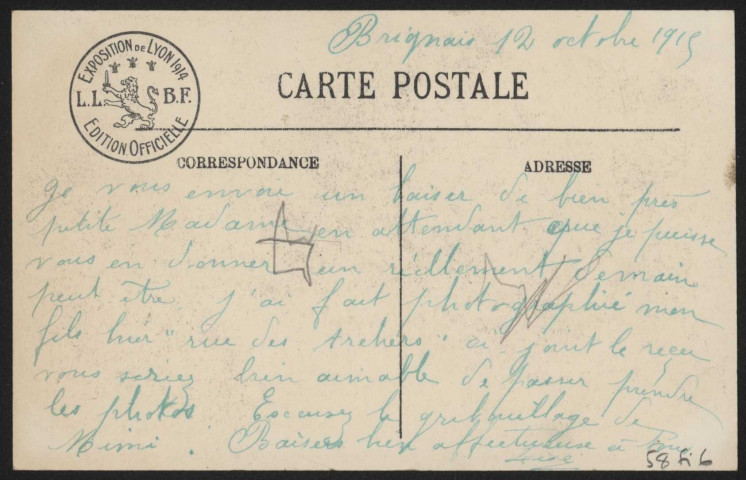 Brignais 12 octobre 1915
EXPOSITION DE LYON 1914
L.L. B.F.
EDITION OFFICIELLE
CARTE POSTALE
CORRESPONDANCE
ADRESSE
Je vous envoie un baiser de bien près
petite Madame en attendant que je puisse
vous en donner un réellement demain
peut être j'ai fait photographié mon
fils hier "rue des Archers" ci joint le reçu
vous seriez bien aimable de passer prendre
les photos. Excusez le gribouillage de
Mimi. Baisers bien affectueuse à
58 fi 6